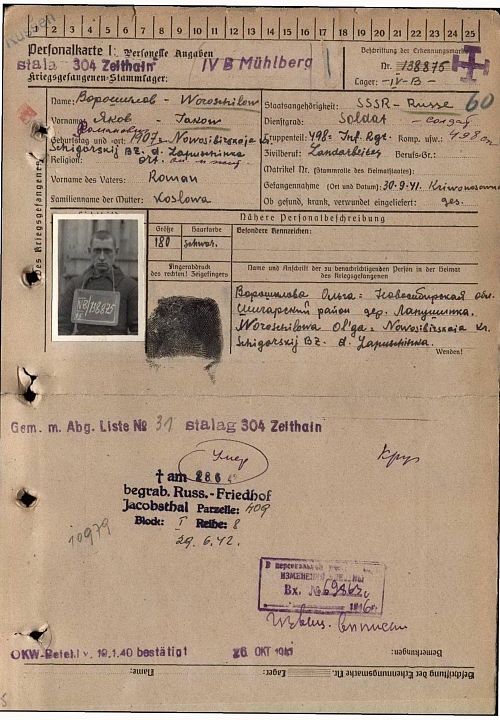 1 2 3 4 5 6 7 8 9 10 11 12 13 14 15 16 17 18 19 20 21 22 23 24 25
Russen
Personalkarte I: Personelle Angaben
Beschriftung der Erkennungsmarke
stala 304 Zeithain IV B Mühlberg
Nr. 138875
Kriegsgefangenen-Stammlager:
Lager: -IV-B-
Des Kriegsgefangenen
Name: Ворошилов - Woroschilow
Staatsangehörigkeit: SSSR-Russe 60
Vorname: Яков - Jakow
Dienstgrad: Soldat - солдат
Романович
Geburtstag und -ort: 1907 - Nowosibirskaja
Truppenteil: 498 = Inf. Rgt. Komp. usw.: 498
Schigorskij BZ. d. Lapuschinka
Zivilberuf: Landarbeiter Berufs-Gr.:
Religion: ort.
Matrikel Nr. (Stammrolle des Heimatstaates):
Vorname des Vaters: Roman
Gefangennahme (Ort und Datum): 30.9.41.
Familienname der Mutter: Koslowa
Ob gesund, krank, verwundet eingeliefert: ges.
Lichtbild
Nähere Personalbeschreibung
Größe Haarfarbe Besondere Kennzeichen:
180 schwar.
Fingerabdruck
des rechten! Zeigefingers
Name und Anschrift der zu benachrichtigenden Person in der Heimat
des Kriegsgefangenen
IVB/138875
Ворошилова Ольга: Новосибирская обл.
район дер. Лапушинка.
Woroschilowa Ol'ga: Nowosibirskaja
Schigorskij BZ. d. Lapuschinka.
Wenden!
Gem. m. Abg. Liste № 31 stalag 304 Zeithain
Умер
† am 28 6
begrab. Russ.-Friedhof
Jacobsthal Parzelle: 409
Block: I Reihe: 8
29.6.42.
10979
В персональной
ИЗМЕНЕНИЯ
Вх. №
OKW-Befehl v. 19.1.40 bestätigt
26 OKT 1941
Bemerkungen:
Beschriftung der Erkennungsmarke Nr. Lager: Name: